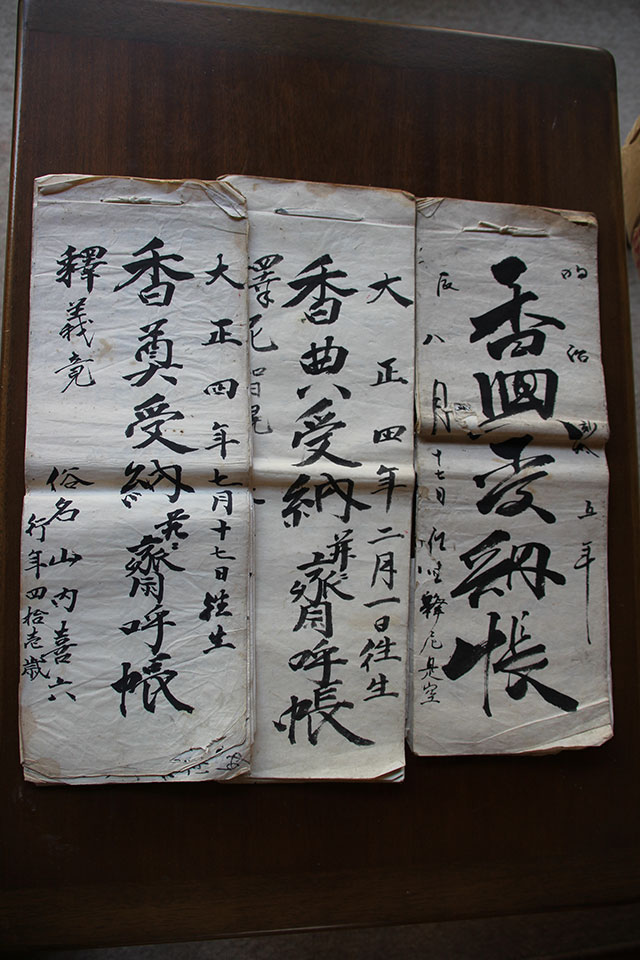 明治 五年
香典受納帳
辰八月十七日往生 釋尼是空
大正四年二月一日往生
香典受納並ニ齋呼帳
釋尼智
大正四年七月十七日往生
香奠受納並ニ齋呼帳
釋義竟
俗名山内喜六
行年四拾壱歳